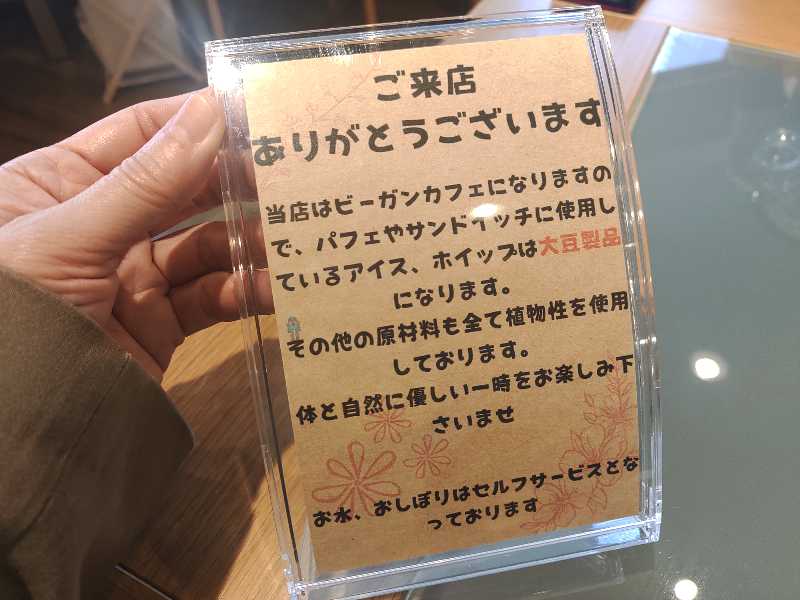 ご来店
ありがとうございます
当店はビーガンカフェになりますの
で、パフェやサンドイッチに使用し
ているアイス、ホイップは大豆製品
になります。
その他の原材料も全て植物性を使用
しております。
体と自然に優しい一時をお楽しみ下
さいませ
お水、おしぼりはセルフサービスとな
っております